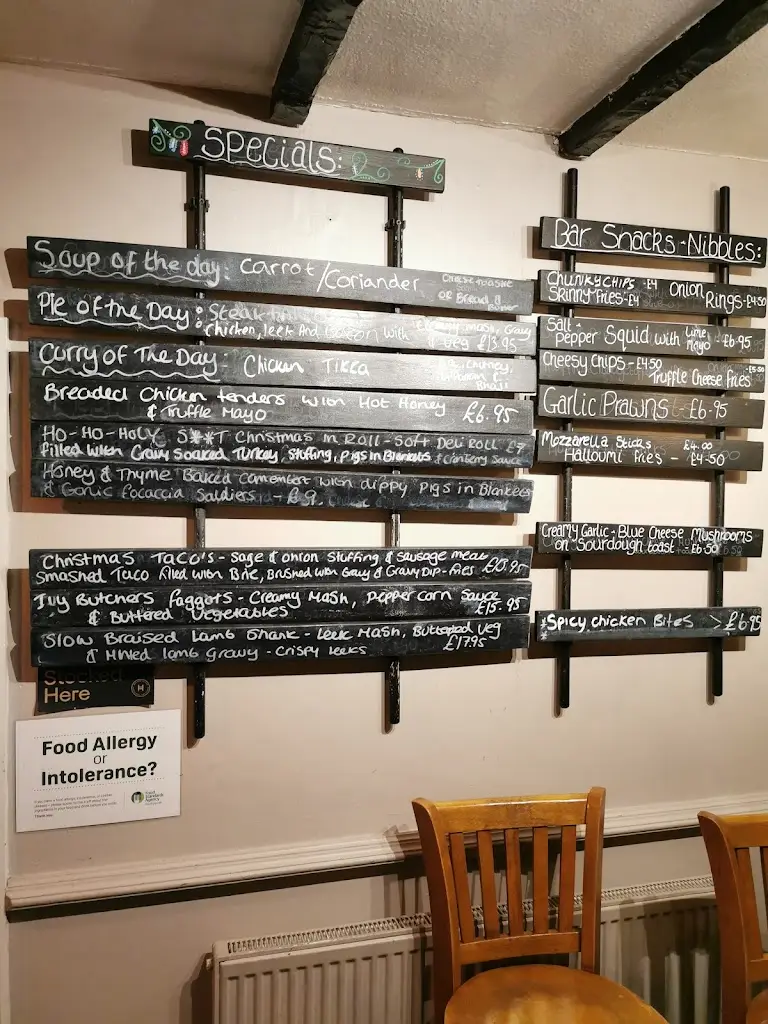 Specials:
Soup of the day: Carrot/Coriander
or Bread &
Pie of the Day:
Chicken, leek And Bacon with
mash, Gravy
& Veg £13.95
Curry of The Day: Chicken Tikka
Breaded Chicken tenders with Hot Honey £6.95
& Truffle Mayo
Ho-Ho-Holy S**T Christmas in Roll - Soft Deli Roll £7
filled with Gravy Soaked Turkey, Stuffing, Pigs in Blankets & Cranberry Sauce
Honey & Thyme Baked Camembert with dippy Pigs in Blankets
& Garlic focaccia Soldiers - £9.
Christmas Taco's - Sage & onion Stuffing & Sausage meat
Smashed Taco filled with Brie, Brushed with Gravy & Gravy Dip - fries £10.95
Ivy Butchers faggots - Creamy Mash, Peppercorn Sauce
& Buttered Vegetables £15-95
Slow Braised Lamb Shank - Leek Mash, Buttered Veg
& Minted lamb gravy - Crispy leeks £17.95
Here
Food Allergy
or
Intolerance?
Food
Standards
Agency
Bar Snacks-Nibbles:
Chunky Chips -£4
Skinny Fries-£4
Onion Rings-£4.50
Salt -
Pepper Squid with Lime Mayo £6-95
Cheesy Chips -£4.50
Truffle Cheese Fries -£5.50
Garlic Prawns - £6-95
Mozzarella Sticks £4.00
Halloumi fries - £4-50
Creamy Garlic - Blue Cheese Mushrooms
on Sourdough toast - £6-50
*Spicy chicken Bites > £6.95